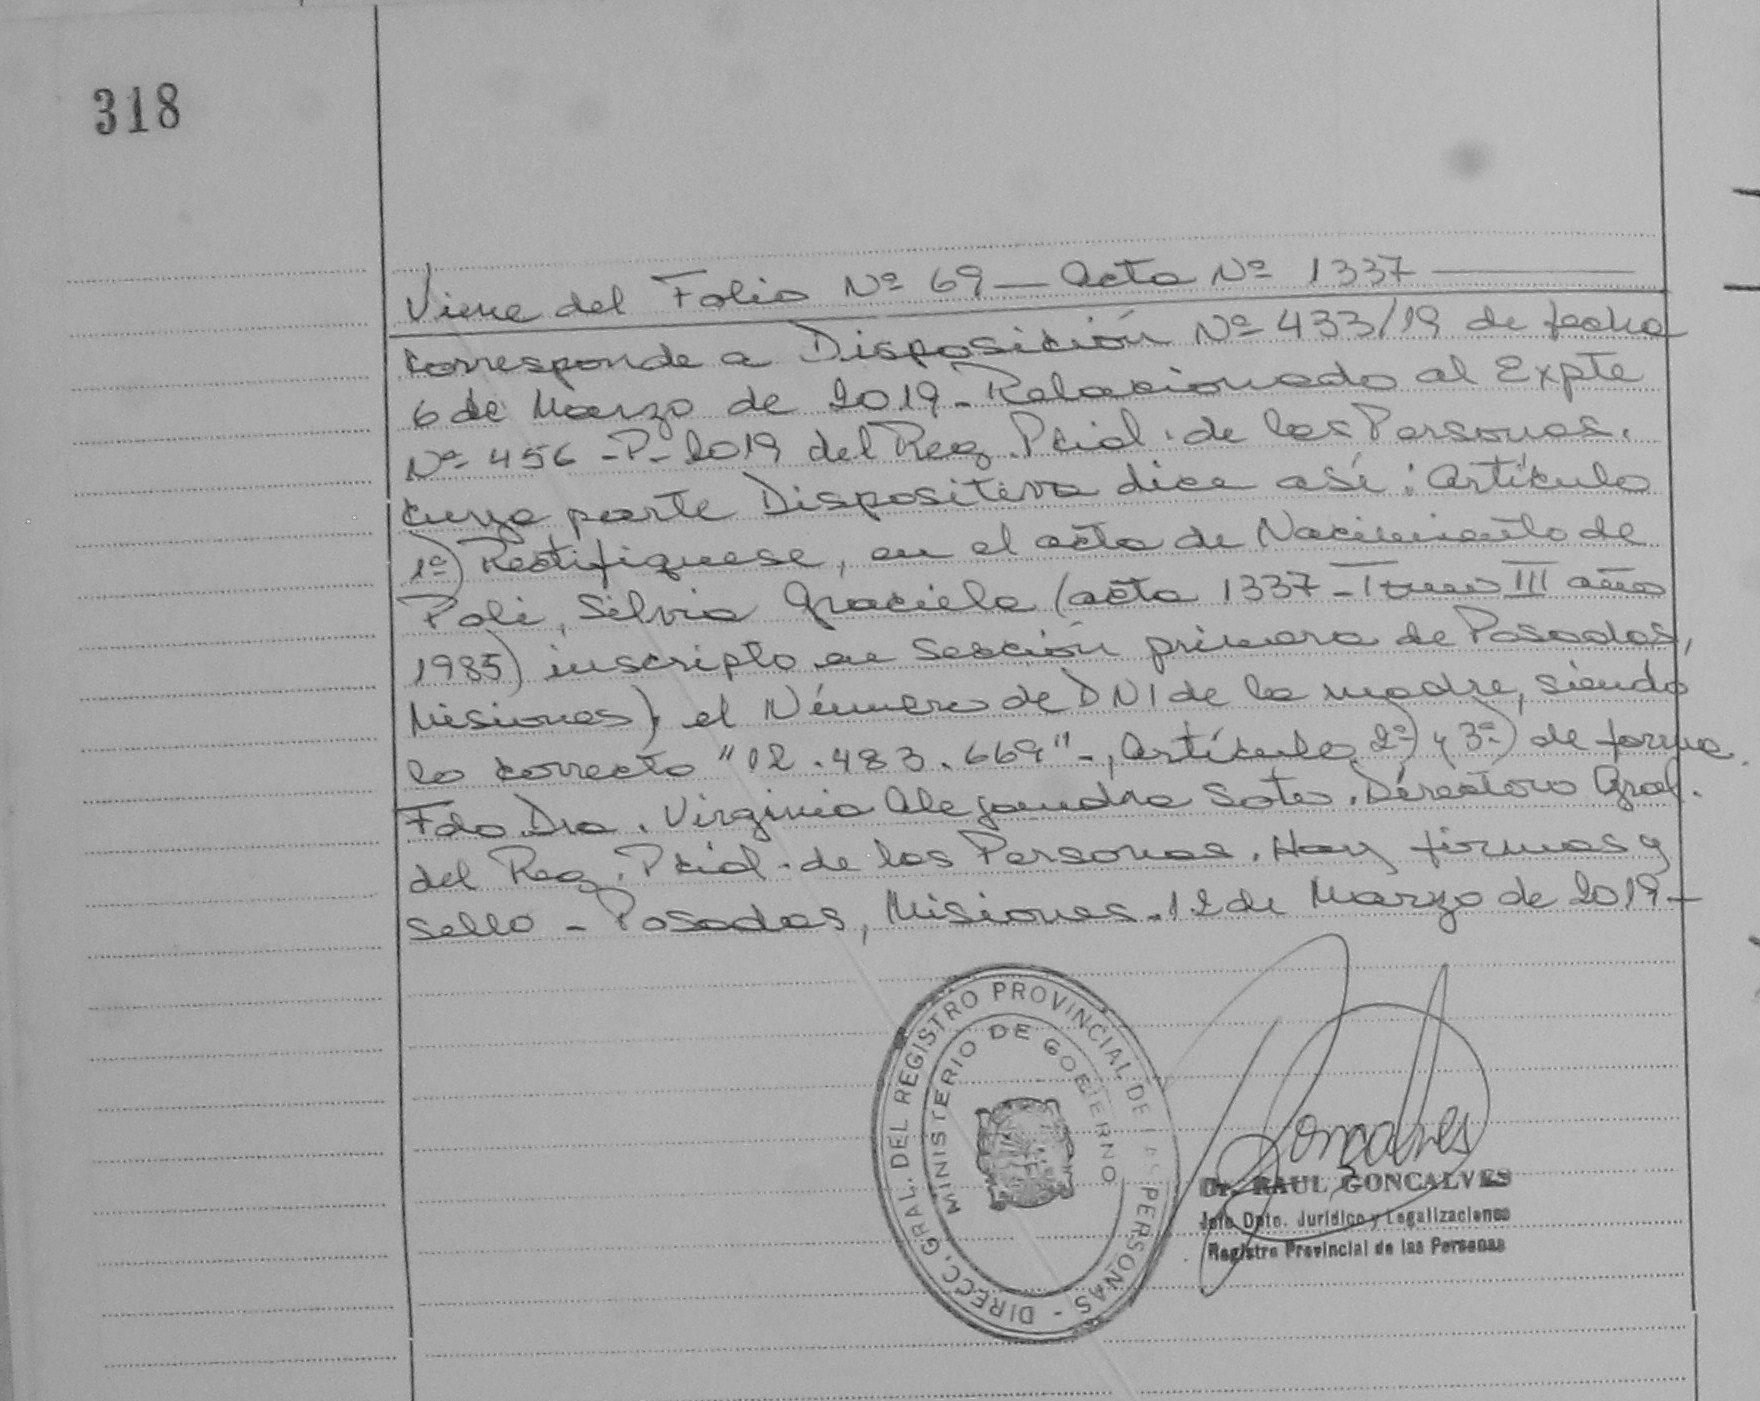 318
Viene del Folio Nº 69 — Acta Nº 1337
Corresponde a Disposición Nº 433/19 de fecha
6 de Marzo de 2019 - Relacionado al Expte
Nº 456 - P - 2019 del Reg. Pcial. de las Personas.
Cuya parte Dispositiva dice así: Artículo
1º) Rectifiquese, en el acta de Nacimiento de
Poli, Silvia Graciela (acta 1337 - Tomo III año
1985) inscripto en sección primera de Posadas,
Misiones), el Número de DNI de la madre, siendo
lo correcto "12.483.669" -, Artículo 2º) y 3º) de forma.
Fdo Dra. Virginia Alejandra Soto. Directora Gral.
del Reg. Pcial. de las Personas. Hay firmas y
sello - Posadas, Misiones. 12 de Marzo de 2019 -
DIRECC. GRAL. DEL REGISTRO PROVINCIAL DE LAS PERSONAS -
MINISTERIO DE GOBIERNO
Goncalves
Dr. RAUL GONCALVES
Jefe Dpto. Jurídico y Legalizaciones
Registro Provincial de las Personas